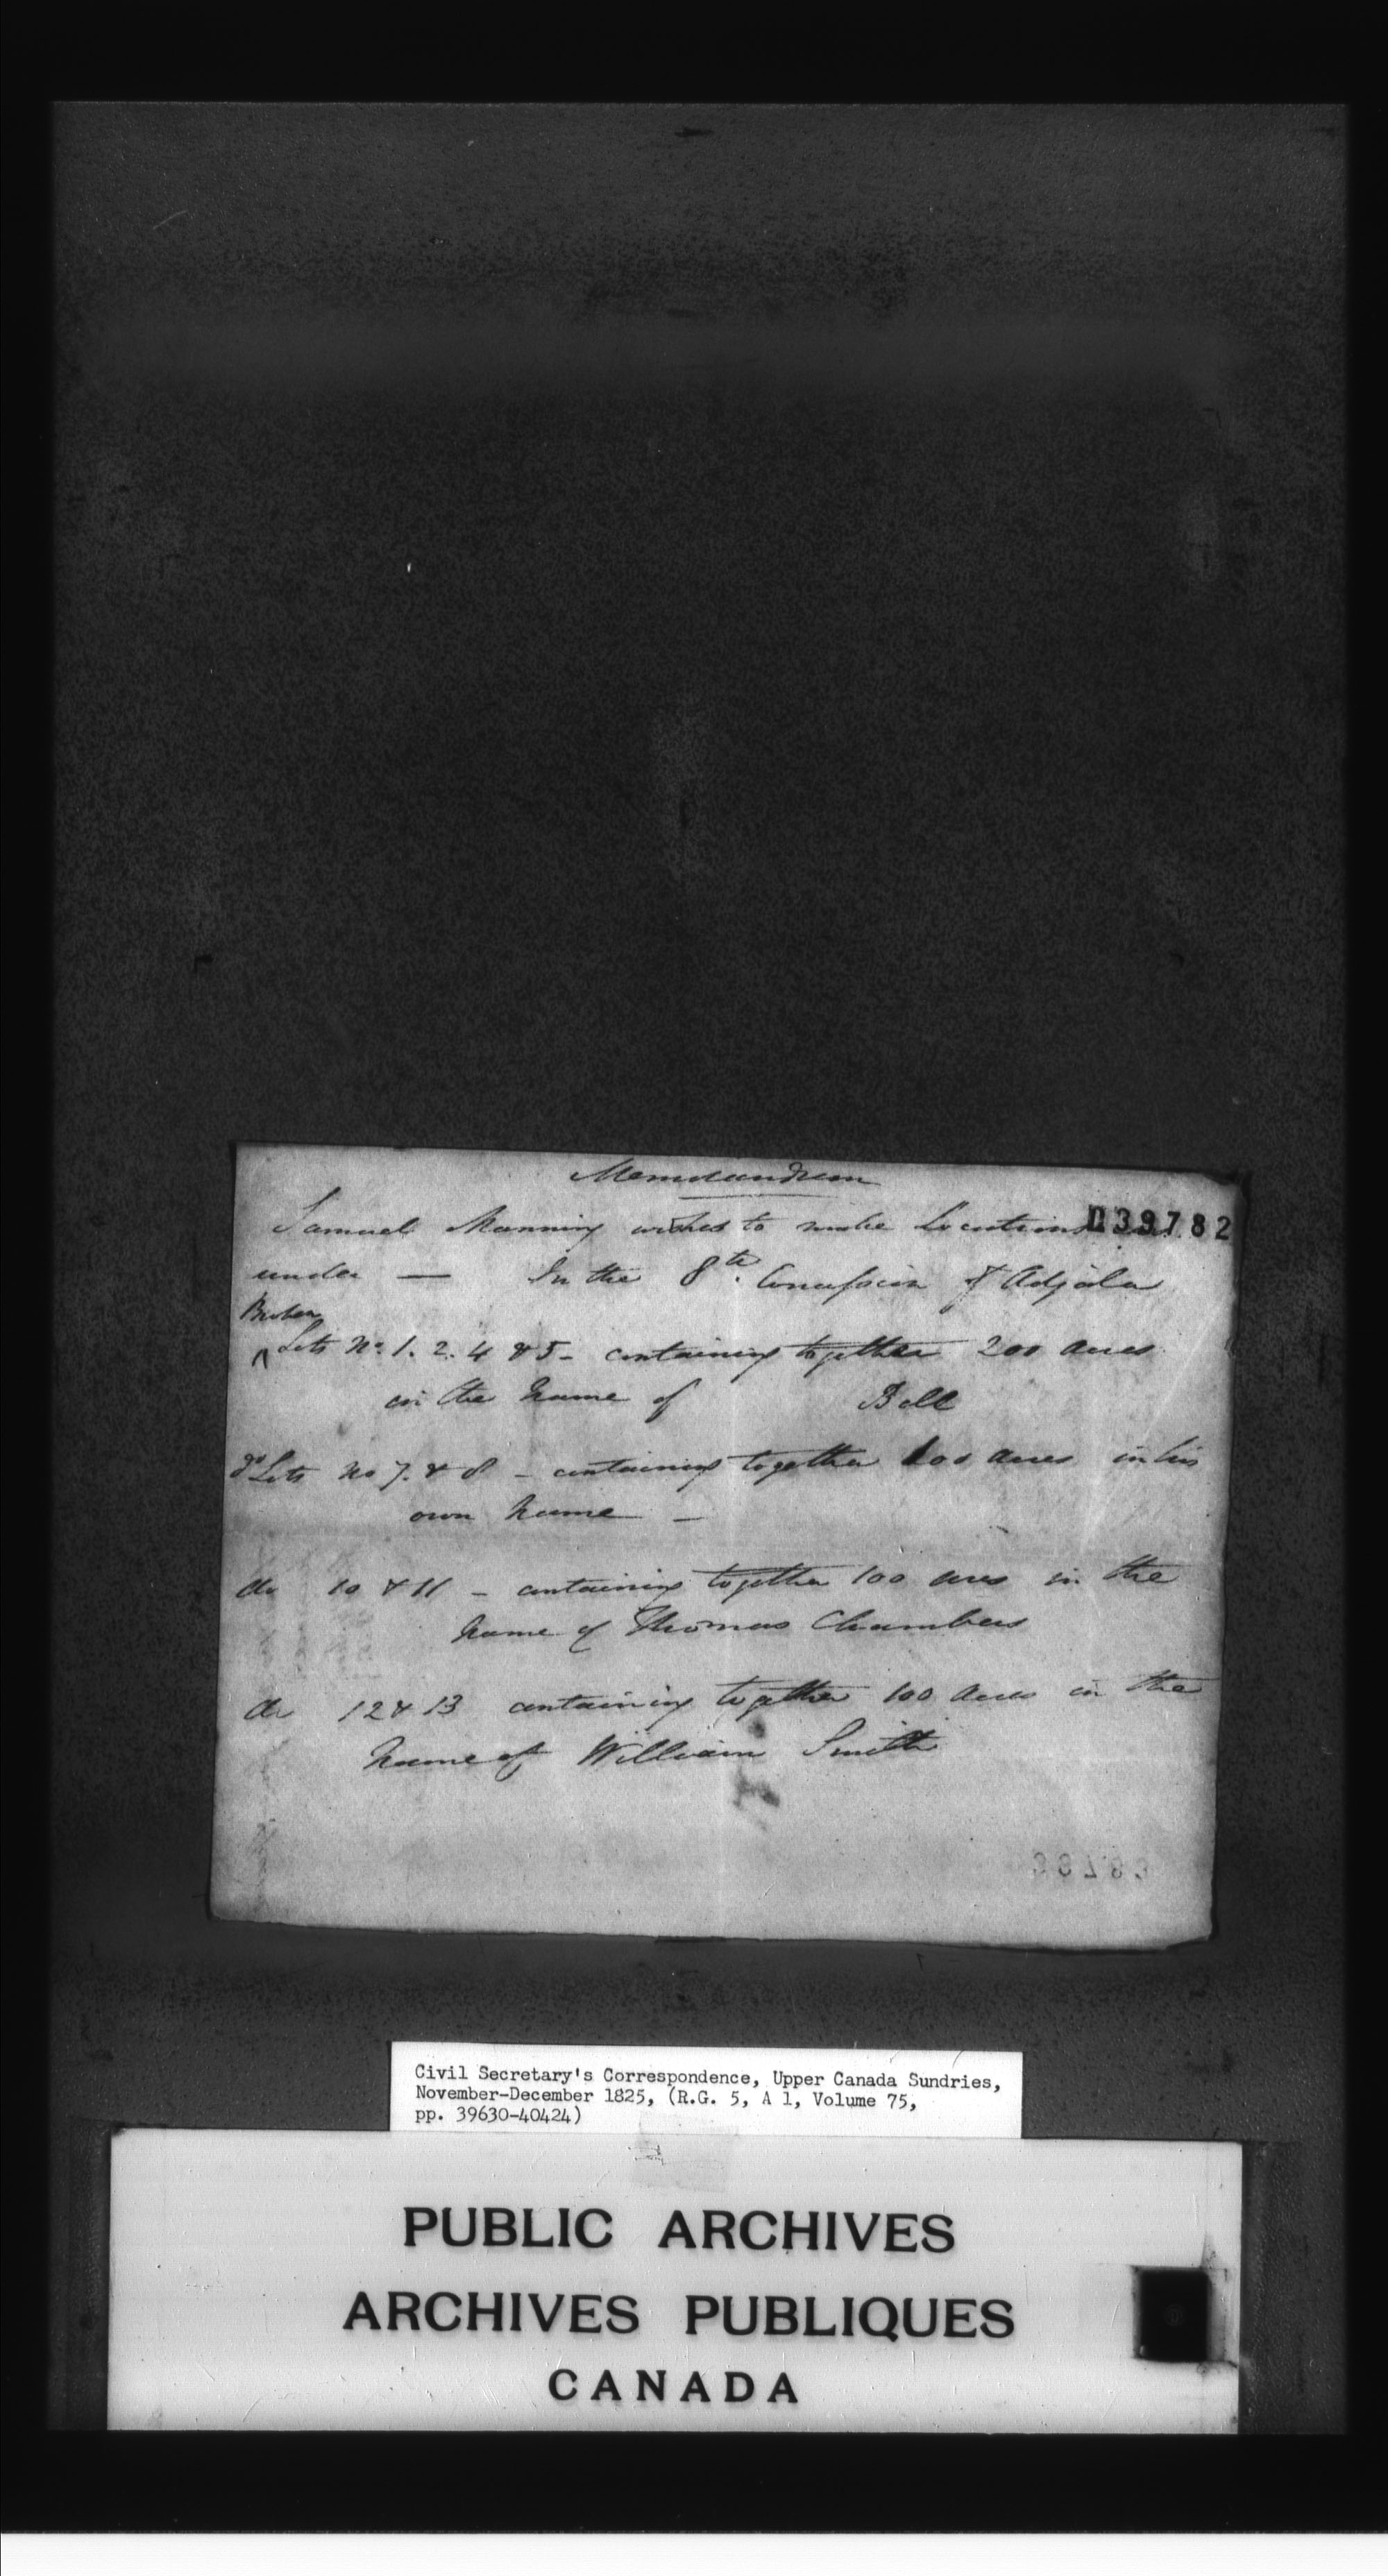 Memorandum
Samuel Manning wishes to make Locations as
039782
under — In the 8th. Concession of Adjala
Broken
^ Lots No. 1. 2. 4 & 5 - containing together 200 acres
in the Name of Bell
do Lots No 7. & 8 - containing together 100 acres in his
own Name —
do 10 & 11 - containing together 100 acres in the
Name of Thomas Chambers
do 12 & 13 containing together 100 acres in the
Name of William Smith
Civil Secretary's Correspondence, Upper Canada Sundries,
November-December 1825, (R.G. 5, A 1, Volume 75,
pp. 39630-40424)
PUBLIC ARCHIVES
ARCHIVES PUBLIQUES
CANADA